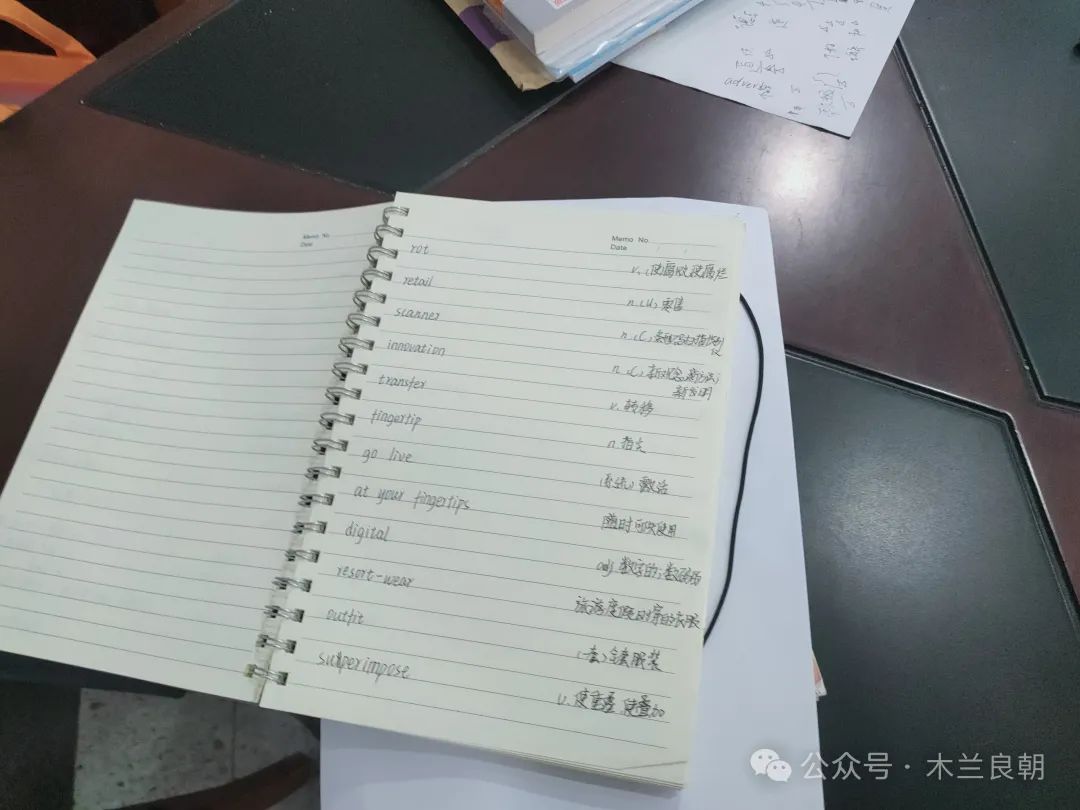 adverbs
Memo No.
Date
Memo No.
Date
rot v. (使)腐败,使腐烂
retail n. (U) 零售
scanner n. (C)
innovation n. (C) 新观念;新方法;
新发明
transfer v. 转移
fingertip n. 指尖
go live (系统) 激活
at your fingertips 随时可供使用
digital adj 数字的;数码的
resort-wear 旅游度假时穿的衣服
outfit (套)全套服装
superimpose v. 使重叠 使叠加
公众号 · 木兰良朝